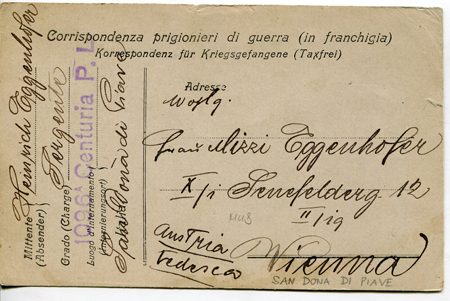 Corrispondenza prigionieri di guerra (in franchigia)
Korrespondenz für Kriegsgefangene (Taxfrei)
Mittente (Absender) Heinrich Eggenhofer
Grado (Charge) Sergente
1096A Centuria P.
Luogo d'internamento
(Internierungsort) San Donà di Piave
Adresse
Wohlg.
Frau Mizzi Eggenhofer
X/1 Senefelderg. 12
II/19
Austria
Tedesca
Vienna
SAN DONA DI PIAVE